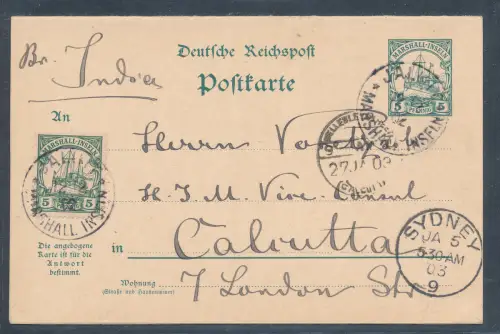 Br. India
Deutsche Reichspost
Postkarte
MARSHALL-INSELN
5 5
JALUIT
MARSHALL INSELN
An
Herrn
H. I. M. Vice Consul
in Calcutta
7 London Str
MARSHALL-INSELN
5 5
JALUIT
MARSHALL INSELN
27 JA 03
SYDNEY
JA 5
5 30 AM
03
9
Die angebogene
Karte ist für die
Antwort
bestimmt.
Wohnung
(Straße und Hausnummer)